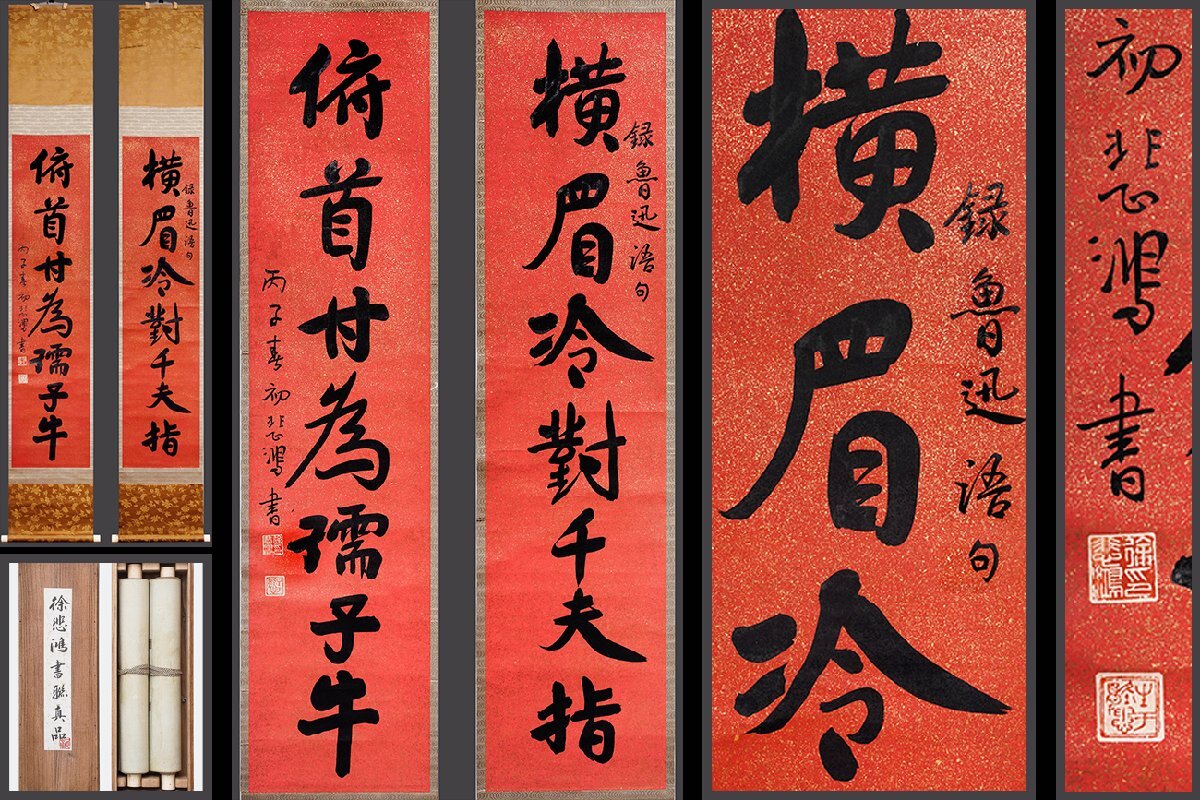 橫眉冷對千夫指
錄魯迅語句
俯首甘為孺子牛
丙子春初悲鴻書
橫眉冷對千夫指
錄魯迅語句
俯首甘為孺子牛
丙子春初悲鴻書
橫眉冷
錄魯迅語句
初悲鴻書
徐悲鴻書聯真品